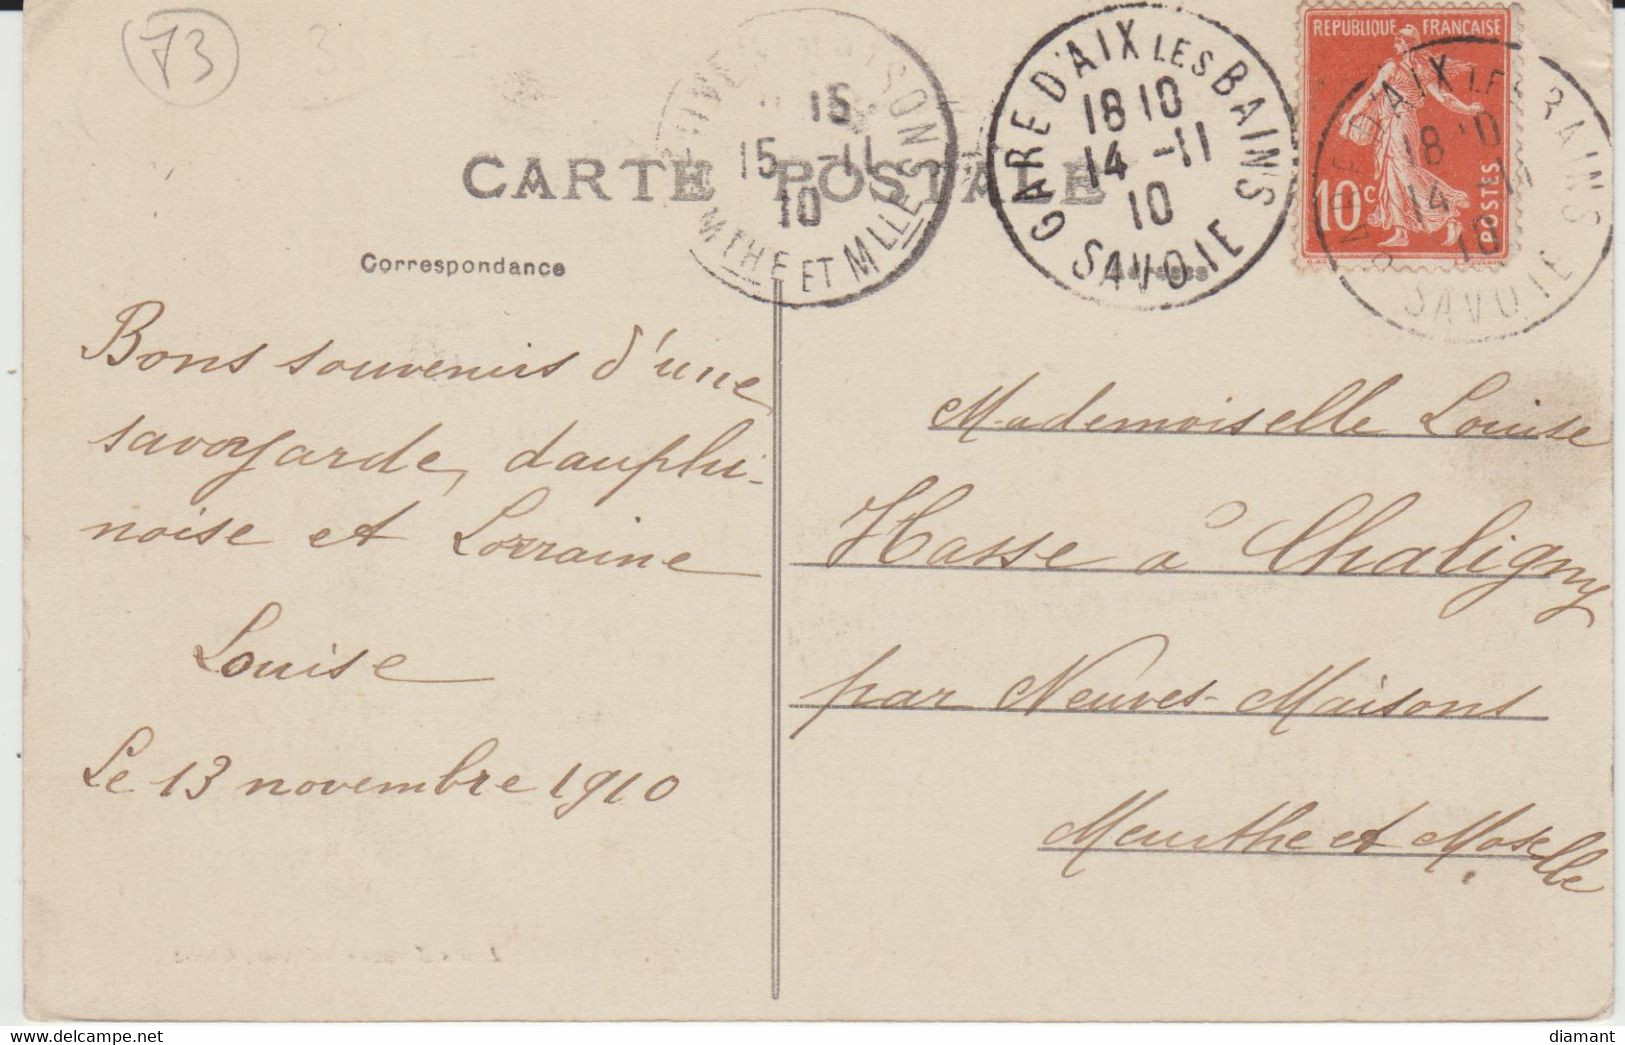 73
3
15
15 -11
10
MTHE ET MLLE
GARE D'AIX LES BAINS
18 10
14 -11
10
SAVOIE
REPUBLIQUE FRANÇAISE
10c
POSTES
18 10
14 11
10
SAVOIE
CARTE POSTALE
Correspondance
Adresse
Bons souvenirs d'une
savoyarde, dauphi-
noise et Lorraine
Louise
Le 13 novembre 1910
Mademoiselle Louise
Hasse à Chaligny
par Neuves-Maisons
Meurthe et Moselle
diamant